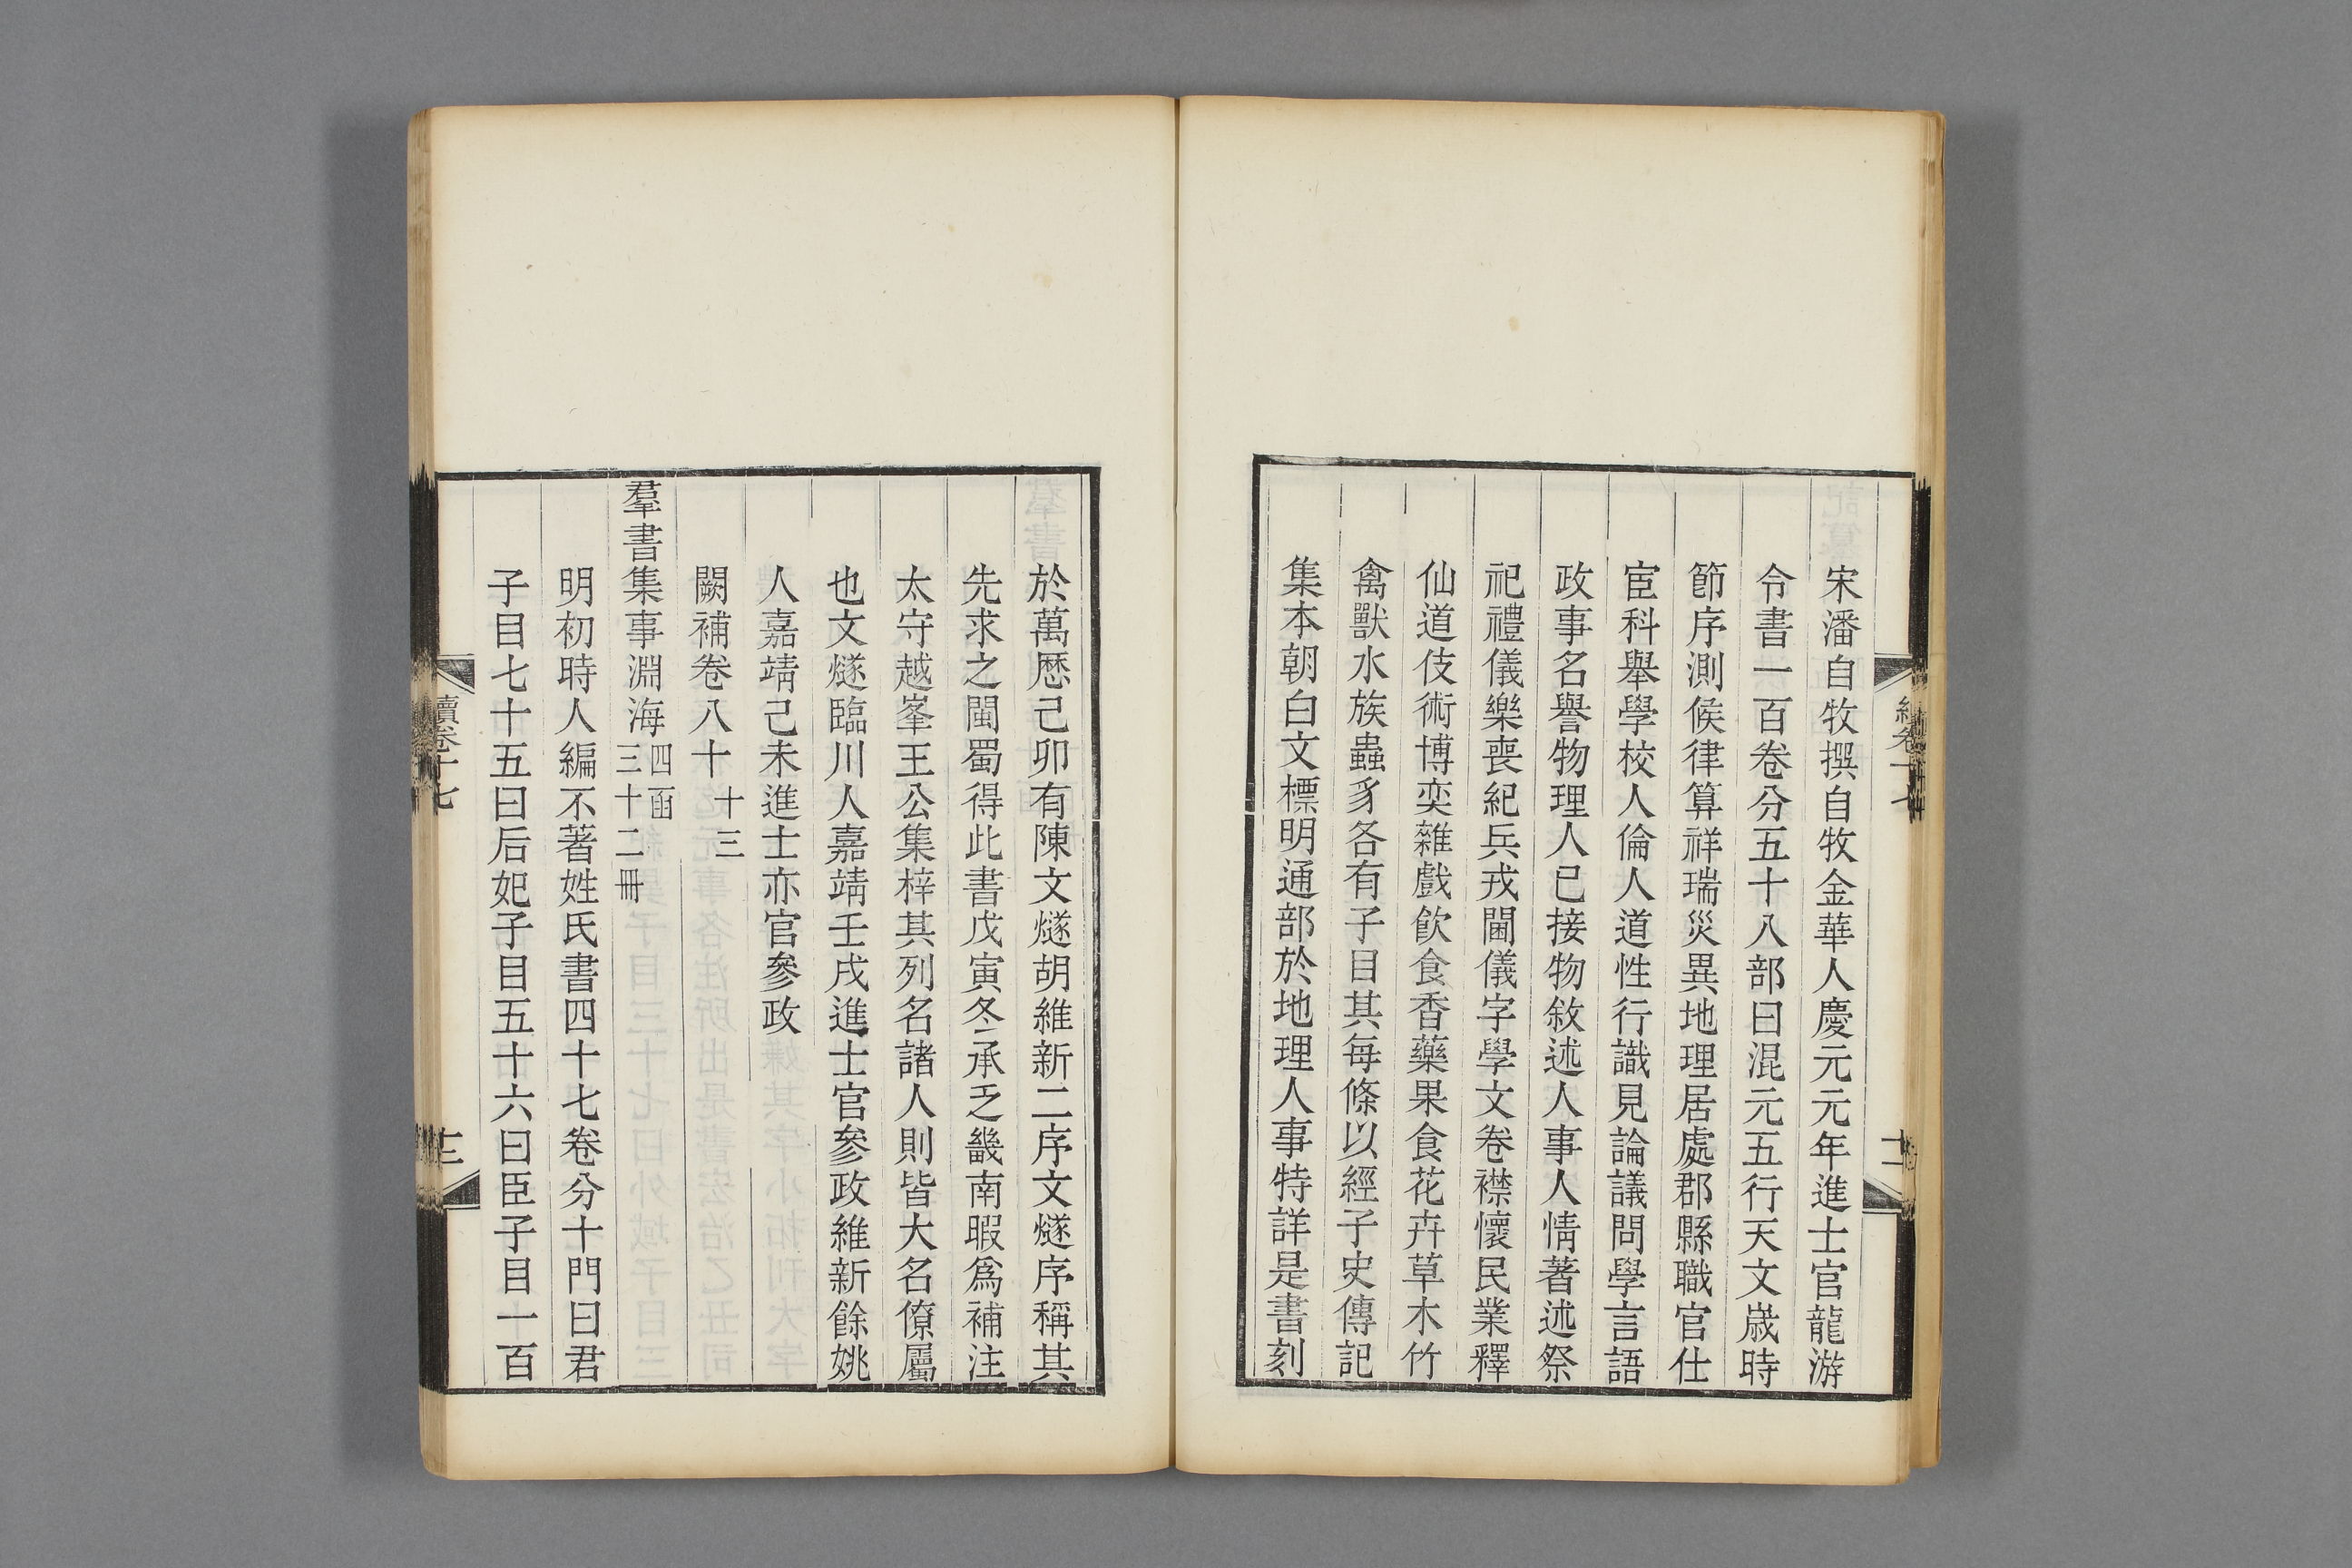 宋潘自牧撰自牧金華人慶元元年進士官龍游
令書一百卷分五十八部曰混元五行天文歲時
節序測候律算祥瑞災異地理居處郡縣職官仕
宦科舉學校人倫人道性行識見論議問學言語
政事名譽物理人己接物敘述人事人情著述祭
祀禮儀樂喪紀兵戎閫儀字學文卷襟懷民業釋
仙道伎術博奕雜戲飲食香藥果食花卉草木竹
禽獸水族蟲豸各有子目其每條以經子史傳記
集本朝白文標明通部於地理人事特詳是書刻
於萬厯己卯有陳文燧胡維新二序文燧序稱其
先求之閩蜀得此書戊寅冬承乏畿南暇爲補注
太守越峯王公集梓其列名諸人則皆大名僚屬
也文燧臨川人嘉靖壬戌進士官參政維新餘姚
人嘉靖己未進士亦官參政
闕補卷八十 十三
羣書集事淵海 四函 三十二冊
明初時人編不著姓氏書四十七卷分十門曰君
子目七十五曰后妃子目五十六曰臣子目一百
續卷十七
十三